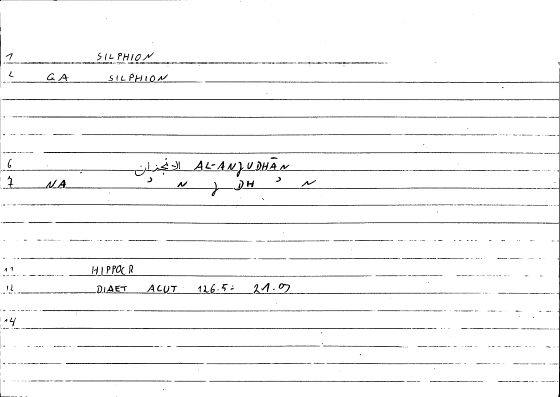 1 SILPHION
2 GA SILPHION
6 الانجذان AL-ANJUDHĀN
7 NA N J DH N
11 HIPPOCR
12 DIAET ACUT 126.5: 21.9
14